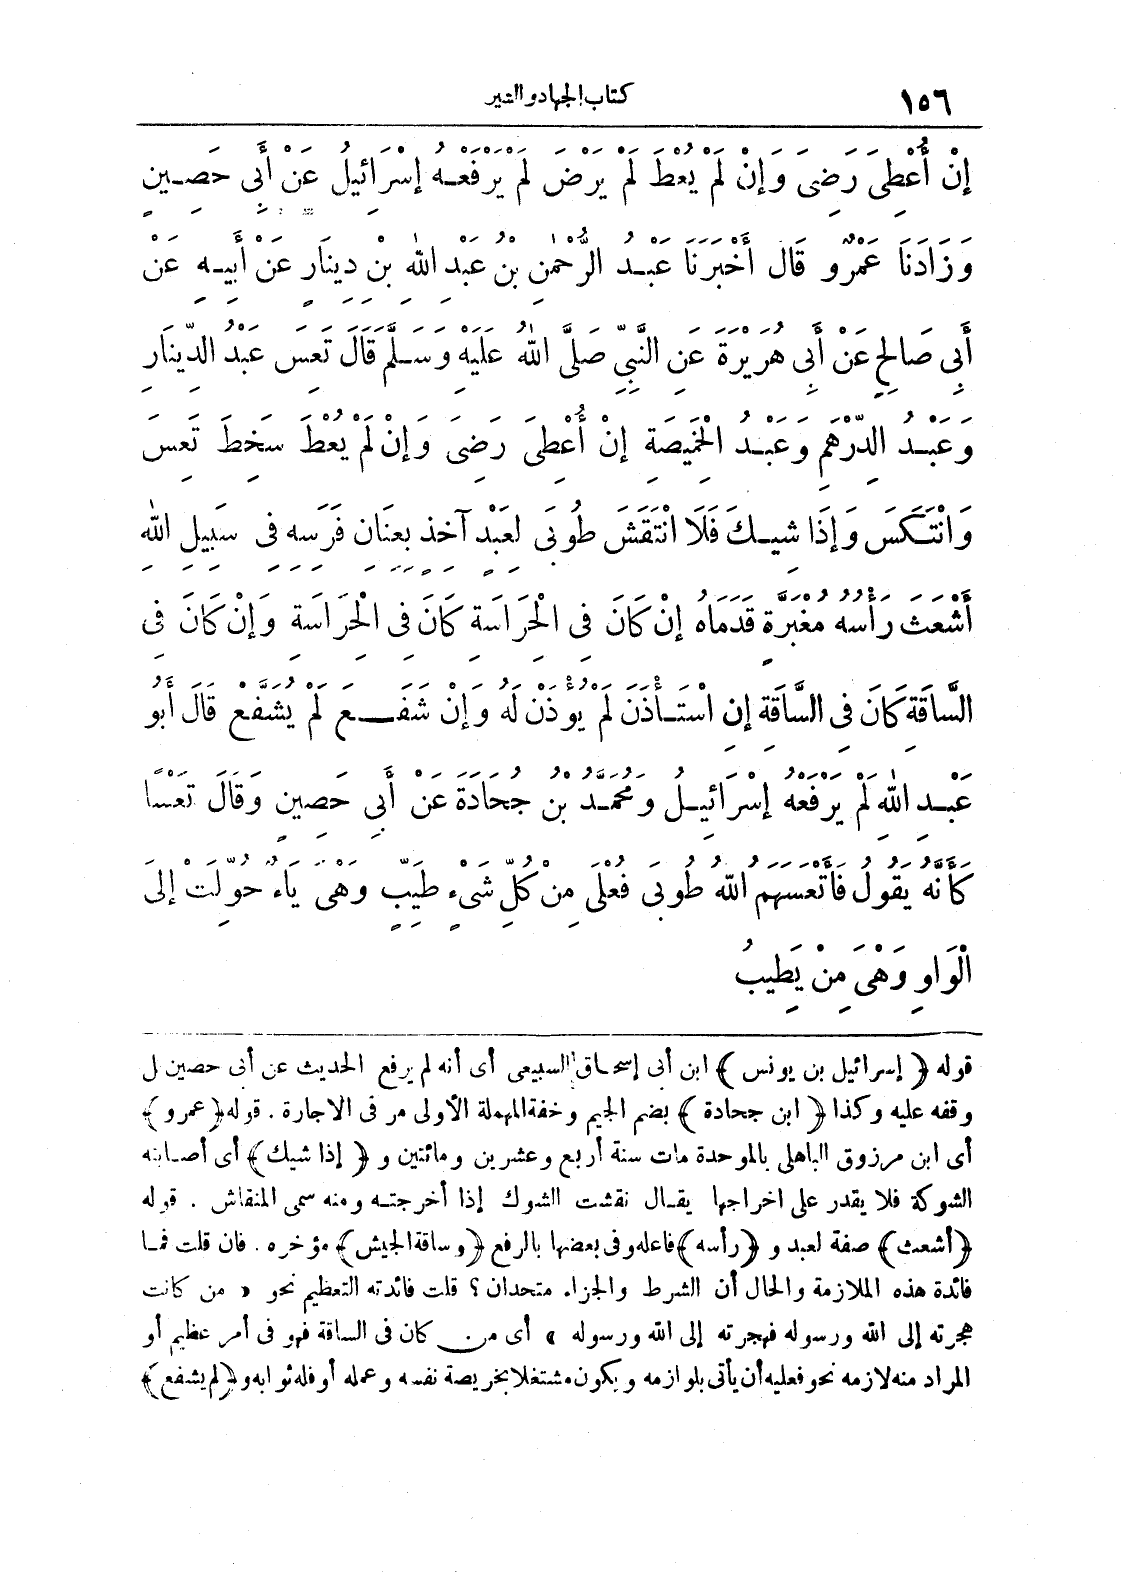 ١٥٦ كتاب الجهاد والسير
إِنْ أُعْطِيَ رَضِيَ وَإِنْ لَمْ يُعْطَ لَمْ يَرْضَ لَمْ يَرْفَعْهُ إِسْرَائِيلُ عَنْ أَبِى حَصِينٍ
وَزَادَنَا عَمْرٌو قَالَ أَخْبَرَنَا عَبْدُ الرَّحْمٰنِ بْنُ عَبْدِ اللّٰهِ بْنِ دِينَارٍ عَنْ أَبِيهِ عَنْ
أَبِى صَالِحٍ عَنْ أَبِى هُرَيْرَةَ عَنِ النَّبِيِّ صَلَّى اللّٰهُ عَلَيْهِ وَسَلَّمَ قَالَ تَعِسَ عَبْدُ الدِّينَارِ
وَعَبْدُ الدِّرْهَمِ وَعَبْدُ الْخَمِيصَةِ إِنْ أُعْطِيَ رَضِيَ وَإِنْ لَمْ يُعْطَ سَخِطَ تَعِسَ
وَانْتَكَسَ وَإِذَا شِيكَ فَلَا انْتَقَشَ طُوبَى لِعَبْدٍ آخِذٍ بِعِنَانِ فَرَسِهِ فِى سَبِيلِ اللّٰهِ
أَشْعَثَ رَأْسُهُ مُغْبَرَّةٍ قَدَمَاهُ إِنْ كَانَ فِى الْحِرَاسَةِ كَانَ فِى الْحِرَاسَةِ وَإِنْ كَانَ فِى
السَّاقَةِ كَانَ فِى السَّاقَةِ إِنِ اسْتَأْذَنَ لَمْ يُؤْذَنْ لَهُ وَإِنْ شَفَعَ لَمْ يُشَفَّعْ قَالَ أَبُو
عَبْدِ اللّٰهِ لَمْ يَرْفَعْهُ إِسْرَائِيلُ وَمُحَمَّدُ بْنُ جُحَادَةَ عَنْ أَبِى حَصِينٍ وَقَالَ تَعْسًا
كَأَنَّهُ يَقُولُ فَأَتْعَسَهُمُ اللّٰهُ طُوبَى فُعْلَى مِنْ كُلِّ شَىْءٍ طَيِّبٍ وَهْىَ يَاءٌ حُوِّلَتْ إِلَى
الْوَاوِ وَهْىَ مِنْ يَطِيبُ
قوله ﴿إسرائيل بن يونس﴾ ابن أبى إسحاق السبيعى أى أنه لم يرفع الحديث عن أبى حصين ل
وقفه عليه وكذا ﴿ابن جحادة﴾ بضم الجيم وخفة المهملة الأولى مر فى الاجارة. قوله ﴿عمرو﴾
أى ابن مرزوق الباهلى بالموحدة مات سنة أربع وعشرين ومائتين و ﴿إذا شيك﴾ أى أصابته
الشوكة فلا يقدر على اخراجها يقال نقشت الشوك إذا أخرجته ومنه سمى المنقاش . قوله
﴿أشعث﴾ صفة لعبد و ﴿رأسه﴾ فاعله وفى بعضها بالرفع ﴿وساقة الجيش﴾ مؤخره. فان قلت فما
فائدة هذه الملازمة والحال أن الشرط والجزاء متحدان؟ قلت فائدته التعظيم نحو « من كانت
هجرته إلى الله ورسوله فهجرته إلى الله ورسوله » أى من كان فى الساقة فهو فى أمر عظيم أو
المراد منه لازمه نحو فعليه أن يأتى بلوازمه ويكون مشتغلا بخويصة نفسه وعمله أو فله ثوابه و﴿لم يشفع﴾